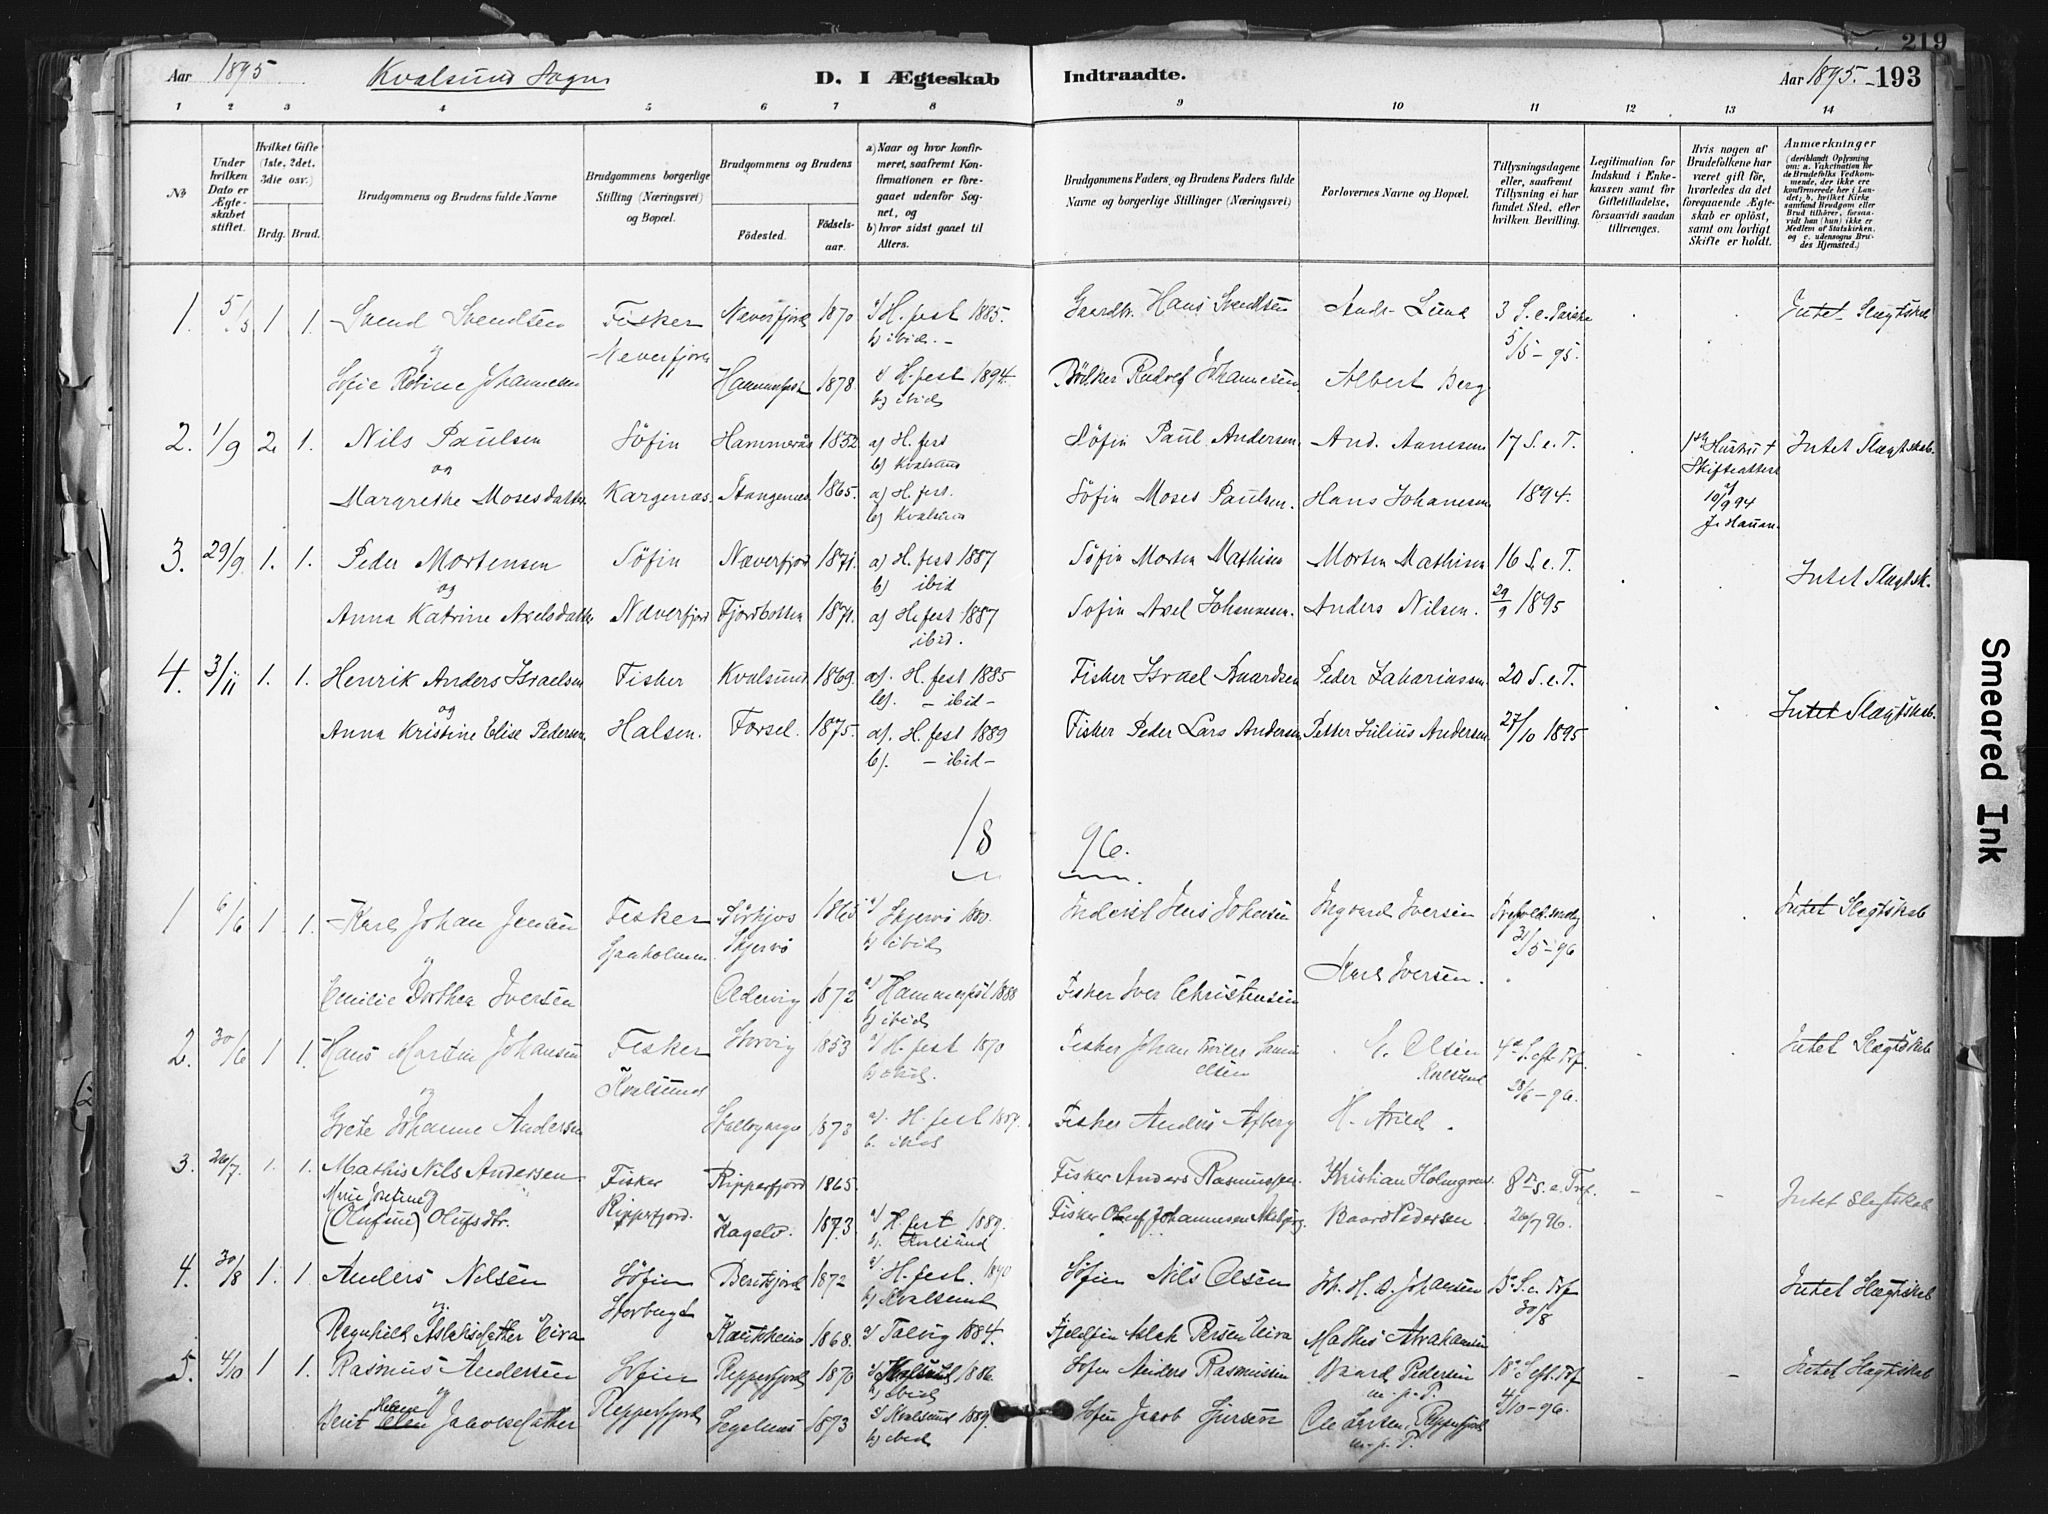 219
Aar 1895. Kvalsund Sogn D. I Ægteskab Indtraadte. Aar 1895. 193
1 2 3 4 5 6 7 8 9 10 11 12 13 14
No
Under hvilken Dato er Ægteskabet stiftet.
Hvilket Gifte (1ste, 2det, 3die osv.)
Brdg. Brud.
Brudgommens og Brudens fulde Navne
Brudgommens borgerlige Stilling (Næringsvei) og Bopæl.
Brudgommens og Brudens
Fødested. Fødselsaar.
a) Naar og hvor konfirmeret, saafremt Konfirmationen er foregaaet udenfor Sognet, og
b) hvor sidst gaaet til Alters.
Brudgommens Faders og Brudens Faders fulde Navne og borgerlige Stillinger (Næringsvei)
Forlovernes Navne og Bopæl.
Tillysningsdagene eller, saafremt Tillysning ei har fundet Sted, efter hvilken Bevilling.
Legitimation for Indskud i Enkekassen samt for Giftetilladelse, forsaavidt saadan tiltrænges.
Hvis nogen af Brudefolkene har været gift før, hvorledes da det foregaaende Ægteskab er opløst, samt om lovligt Skifte er holdt.
Anmærkninger
(deriblandt Oplysning om: a. Vakcination for de Brudefolks Vedkommende, der ikke ere konfirmerede her i Landet; b. hvilket Kirkesamfund Brudgom eller Brud tilhører, forsaavidt han (hun) ikke er Medlem af Statskirken, og c. udensogns Brudes Hjemsted.)
1. 5/5 1 1. Svend Svendsen Fisker Neverfjord 1870 a) H.fest 1885. Gaardbr. Hans Svendsen Andr. Lund 3 S. e. Paaske Intet Slægtskab
og Neverfjord b) ibid. 5/5 - 95.
Sofie Petrine Johannesen Hammerfest 1878. a) H.fest 1894. Bødker Rudolf Johannesen Albert Berg
b) ibid
2. 1/9 2. 1. Nils Paulsen Søfin Hammernæs 1852 a) H.fest Søfin Paul Andersen. And. Aunesen 17 S. e. T. 1ste Hustru † Intet Slægtskab.
og b) Kvalsund Skifteattest
Margrethe Mosesdatter Kargenæs. Stangenæs. 1865. a) H.fest. Søfin Moses Paulsen. Hans Johannesen 1894. af
b) Kvalsund 10/9 94
3. 29/9. 1. 1. Peder Mortensen Søfin Næverfjord 1871. a) H.fest 1887 Søfin Morten Mathisen Morten Mathisen 16 S. e. T. Intet Slægtsk.
og b) ibid 29/9 1895
Anna Katrine Axelsdatter Næverfjord Fjordbotten 1871. a) H.fest 1887 Søfin Axel Johannesen. Anders Nilsen.
ibid.
4. 3/11 1. 1. Henrik Anders Israelsen Fisker Kvalsund 1869. a). H.fest 1885 Fisker Israel Baardsen Peder Zakariassen 20 S. e. T. Intet Slægtskab.
og b). - ibid -
Anna Kristine Elise Pedersen. Halsen. Forsøl. 1875. a). H.fest 1889 Fisker Peder Lars Andersen Petter Julius Andersen. 27/10 1895
b). - ibid -
18 96.
1 6/6 1. 1. Karl Johan Jensen Fisker Skjervø 1865 a) Skjervø 1880. Inderst Jens Johansen Ingvard Iversen Intet Slægtskab
og b) ibid 31/5 - 96
Emilie Dorthea Iversen 1872 a) Hammerfest 1888 Fisker Iver Christensen Karl Iversen.
b) ibid
2. 30/6 1 1. Hans Martin Johansen Fisker Storvig 1853 a) H.fest 1870 Fisker Johan S. Olsen Intet Slægtskab
og Kvalsund b) ibid. Kvalsund 28/6 - 96.
Grete Johanne Andersen 1873 a). H.fest 1889. Fisker Anders H. Arild.
b. ibid
3. 26/7. 1. 1. Mathis Nils Andersen Fisker Ripperfjord 1865. Fisker Anders Rasmussen Kristian Holmgren 8de S. e. Tref. Intet Slegtskab
Marie Josefine og Ripperfjord.
(Olufine) Olufsdtr. Kagelv. 1873 a) H.fest 1889. Fisker Oluf Johannesen Baard Pedersen 26/7 96.
b). Kvalsund
4. 30/8 1. 1. Anders Nilsen Søfin Beritsfjord 1872 a) H.fest. 1890 Søfin Nils Olsen Joh. H. A. Johansen S. e. Trf Intet Slægtskab
og b) Kvalsund 30/8
Ragnhild Aslaksdatter Eira Kautokeino 1868. a) Talvig 1884. Fjeldfin Aslak Persen Eira Mathis Abrahamsen
5. 4/10 1 1 Rasmus Andersen Søfin Repperfjord 1870 a) Kvalsund 1886. Søfin Anders Rasmussen Baard Pedersen 18de S. eft. Trf Intet Slægtskab
og Repperfjord b) ibid m. p. P. 4/10 - 96.
Berit Jakobsdatter Segelnes 1873 a) Kvalsund 1889. Søfin Jacob Ole Larsen, Repperfjord
b) ibid m. p. P.
Smeared Ink